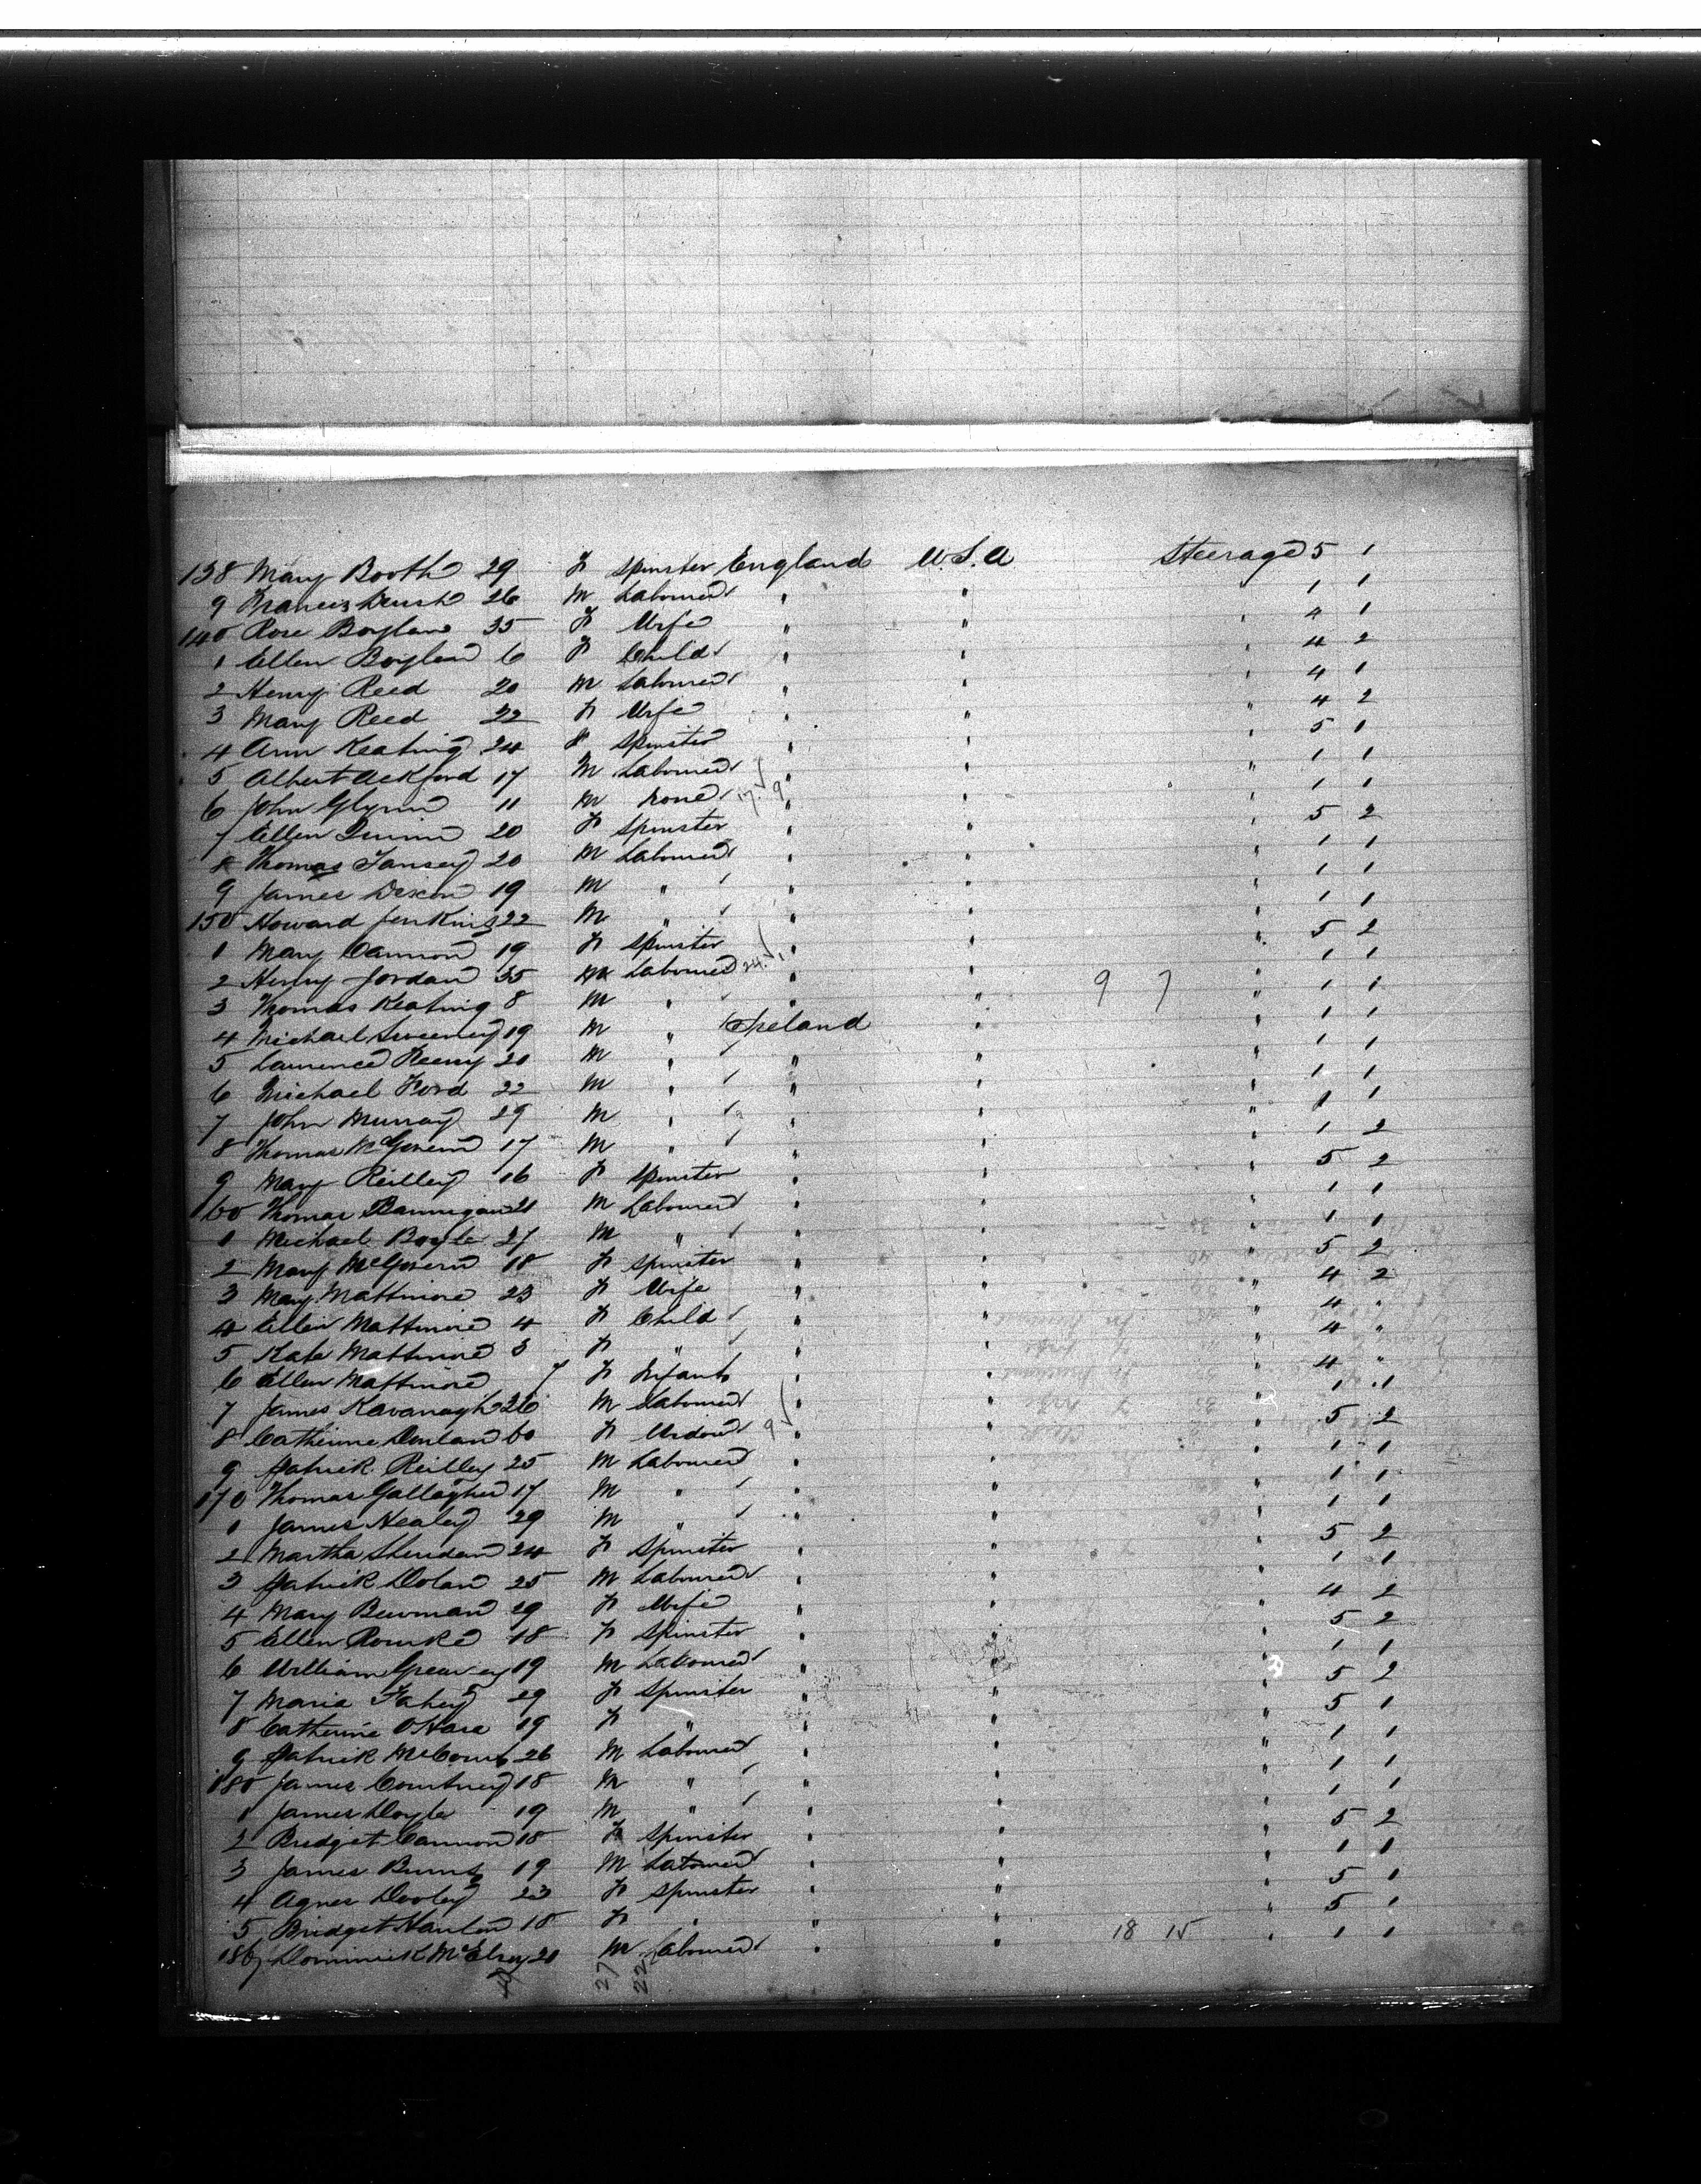 138 Mary Booth 29 F Spinster England U.S.A Steerage 5 1
9 Francis 26 M Labourer " " 1 1
140 Rose Boylan 35 F Wife " " " 4 1
1 Ellen Boylan 6 F Child " " " 4 2
2 Henry Reed 20 M Labourer " " 4 1
3 Mary Reed 22 F Wife " " " 4 2
4 Ann Keating 24 F Spinster " " " 5 1
5 Albert Ackford 17 M Labourer " " " 1 1
6 John Glynn 11 M None " " " 1 1
7 Ellen Quinn 20 F Spinster " " " 5 2
8 Thomas Tansey 20 M Labourer " " " 1 1
9 James Dixon 19 M " " " " 1 1
150 Howard Jenkins 22 M " " " " 1 1
1 Mary Cannon 19 F Spinster " " " 5 2
2 Henry Jordan 35 M Labourer 24 " " " 1 1
3 Thomas Keating 8 M " " " 9 7 " 1 1
4 Michael Sweeney 19 M " Ireland " " 1 1
5 Laurence 20 M " " " " 1 1
6 Michael Ford 22 M " " " " 1 1
7 John Murray 29 M " " " " 1 1
8 Thomas McGovern 17 M " " " " 1 2
9 Mary Reilley 16 F Spinster " " " 5 2
160 Thomas Bannigan 21 M Labourer " " " 1 1
1 Michael Boyle 27 M " " " " 1 1
2 Mary McGovern 18 F Spinster " " " 5 2
3 Mary Mattimore 23 F Wife " " " 4 2
4 Ellen Mattimore 4 F Child " " " 4 "
5 Kate Mattimore 3 F " " " " 4 "
6 Ellen Mattimore 7 F Infant " " " 4 "
7 James Kavanagh 26 M Labourer " " " 1 1
8 Catherine Donlan 60 F Widow 9 " " " 5 2
9 Patrick Reilley 25 M Labourer " " " 1 1
170 Thomas Gallagher 17 M " " " " 1 1
1 James Healey 29 M " " " " 1 1
2 Martha Sheridan 24 F Spinster " " " 5 2
3 Patrick Dolan 25 M Labourer " " " 1 1
4 Mary Bowman 29 F Wife " " " 4 2
5 Ellen Rourke 18 F Spinster " " " 5 2
6 William 19 M Labourer " " " 1 1
7 Maria Fahey 29 F Spinster " " " 5 2
8 Catherine O'Hara 19 F " " " " 5 1
9 Patrick 26 M Labourer " " " 1 1
180 James Courtney 18 M " " " " 1 1
1 James Doyle 19 M " " " " 1 1
2 Bridget Cannon 18 F Spinster " " " 5 2
3 James Burns 19 M Labourer " " " 1 1
4 Agnes Dooley 23 F Spinster " " " 5 1
5 Bridget Hanlon 18 F " " " " 5 1
186 Dominick McElroy 20 M Labourer " " 18 15 " 1 1
27 22